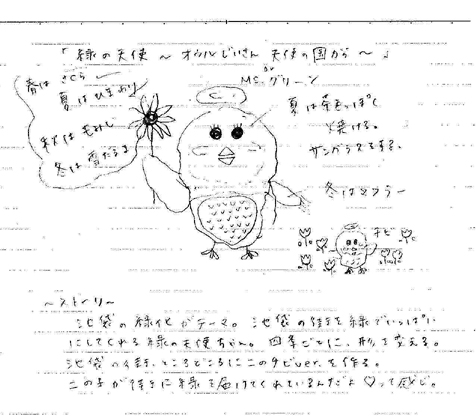 「緑の天使 〜 オウルじいさん 天使の国から 〜」
or
Ms. グリーン
春は さくら
夏は ひまわり
秋は もみじ
冬は 雪だるま
夏は 茶色っぽく
焼ける。
サングラスをする。
冬はマフラー
チビ
〜ストーリー〜
池袋の緑化がテーマ。池袋の街を緑でいっぱい
にしてくれる緑の天使ちゃん。四季ごとに、形を変える。
池袋の街、ところどころにこのチビver.を作る。
この子が街に緑を届けてくれているんだよ♡って感じ。